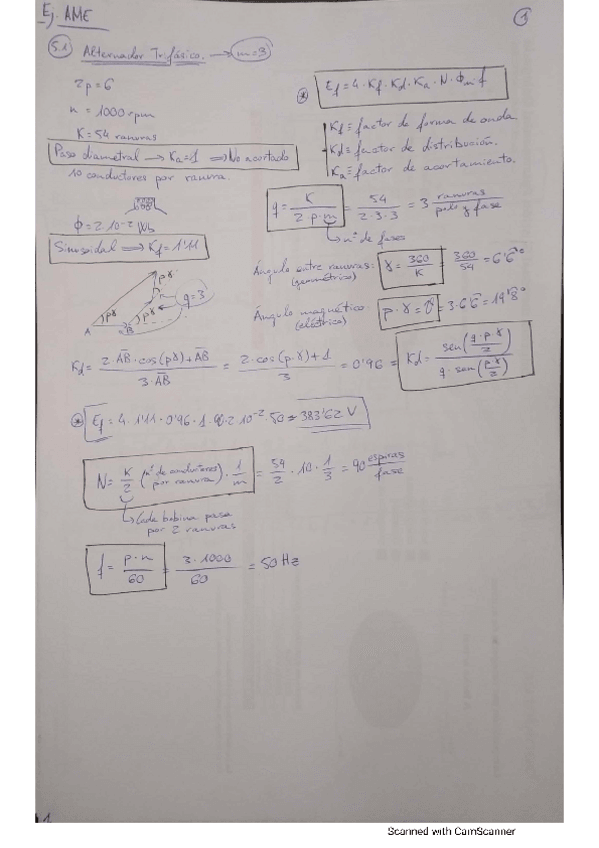 Ej. AME
1
5.1 Alternador Trifásico. → m=3
2p=6
n = 1000 rpm
K=54 ranuras
Paso diametral → Ka=1 ⟹ No acortado
10 conductores por ranura.
Φ=2·10⁻² Wb
Sinusoidal ⟹ Kf=1'11
* Ef=4·Kf·Kd·Ka·N·Φm·f
Kf=factor de forma de onda
Kd=factor de distribución.
Ka=factor de acortamiento.
q = K / 2·p·m = 54 / 2·3·3 = 3 ranuras / polo y fase
nº de fases
Ángulo entre ranuras: γ = 360 / K = 360 / 54 = 6'6°
(geométrico)
Ángulo magnético:
(eléctrico)
pγ
q=3
pγ
pγ
A
B
Kd = 2·AB·cos(pγ)+AB / 3·AB = 2·cos(p·γ)+1 / 3 = 0'96 = Kd = sen(q·p·γ / 2) / q·sen(p·γ / 2)
* Ef = 4·1'11·0'96·1·90·2·10⁻²·50 = 383'62 V
N = K / 2 · (nº de conductores por ranura) · 1 / m = 54 / 2 · 10 · 1 / 3 = 90 espiras / fase
Cada bobina pasa
por 2 ranuras
f = p·n / 60 = 3·1000 / 60 = 50 Hz
1
Scanned with CamScanner